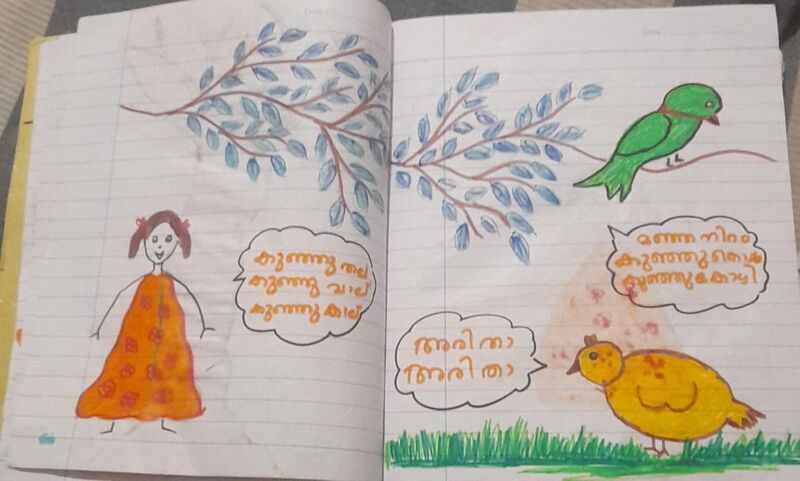 Date :
Date :
കുഞ്ഞു തല
കുഞ്ഞു വാല്
കുഞ്ഞു കാല്
മഞ്ഞ നിറം
കുഞ്ഞു
കുഞ്ഞു കോഴി
അരി താ
അരി താ